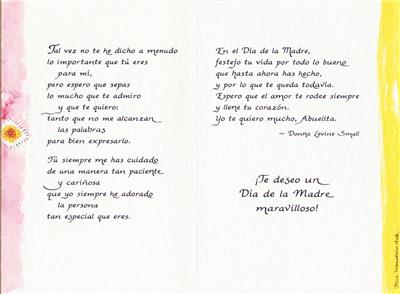 Tal vez no te he dicho a menudo
lo importante que tú eres
para mí,
pero espero que sepas
lo mucho que te admiro
y que te quiero:
tanto que no me alcanzan
las palabras
para bien expresarlo.
Tú siempre me has cuidado
de una manera tan paciente
y cariñosa
que yo siempre he adorado
la persona
tan especial que eres.
En el Día de la Madre,
festejo tu vida por todo lo bueno
que hasta ahora has hecho,
y por lo que te queda todavía.
Espero que el amor te rodee siempre
y llene tu corazón.
Yo te quiero mucho, Abuelita.
~ Donna Levine Small
¡Te deseo un
Día de la Madre
maravilloso!